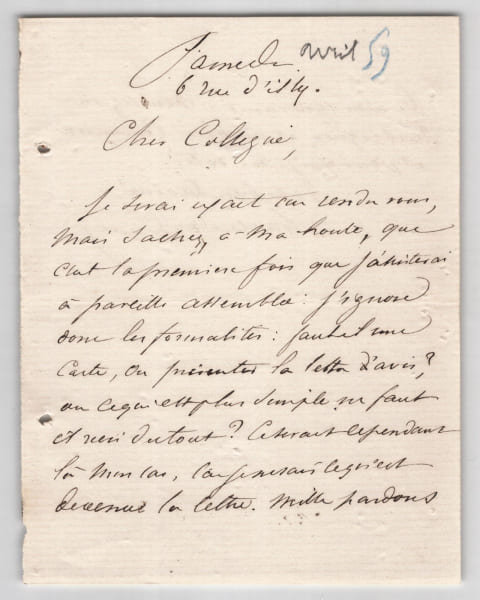 Samedi avril 59
6 rue d'isly.
Cher Collegue,
Je serai exact au rendez vous,
mais sachez, à ma honte, que
c'est la premiere fois que j'assisterai
à pareille assemblée: j'ignore
donc les formalités: faut il une
carte, ou presenter la lettre d'avis?
ou ce qui est plus simple ne faut
il rien du tout? Ce serait cependant
là mon cas, car je ne sais ce qu'est
devenue la lettre. Mille pardons